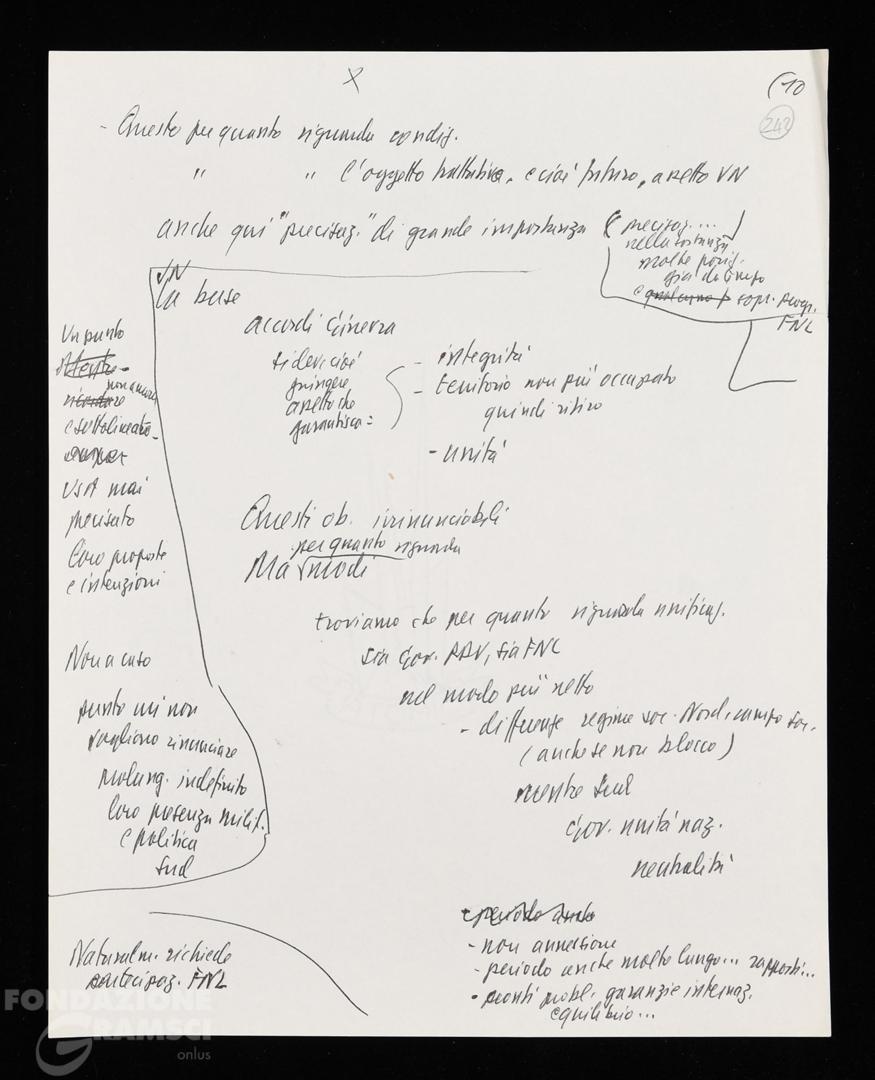 X
(10
242
- Questo per quanto riguarda condiz.
" " l'oggetto trattativa, e cioè futuro, assetto VN
anche qui "precisaz." di grande importanza
( precisaz....
nella sostanza
molte posiz.
già da tempo
e sopr. progr.
FNL
VN
la base
accordi Ginevra
si deve cioè
giungere
assetto che
garantisca =
- integrità
- territorio non più occupato
quindi ritiro
- unità
Un punto
non ancora
e sottolineato -
USA mai
precisato
loro proposte
e intenzioni
Non a caso
punto cui non
vogliono rinunciare
prolung. indefinito
loro presenza milit.
e politica
Sud
Questi ob. irrinunciabili
per quanto riguarda
Ma modi
troviamo che per quanto riguarda unificaz.
sia Gov. RDV, sia FNL
nel modo più netto
- differenze regime soc. Nord, campo soc.
(anche se non blocco)
mentre Sud
Gov. unità naz.
neutralità
- periodo anche
- non annessione
- periodo anche molto lungo... rapporti...
- pronti probl. garanzie internaz.
equilibrio...
Naturalm. richiede
partecipaz. FNL
FONDAZIONE
GRAMSCI
onlus